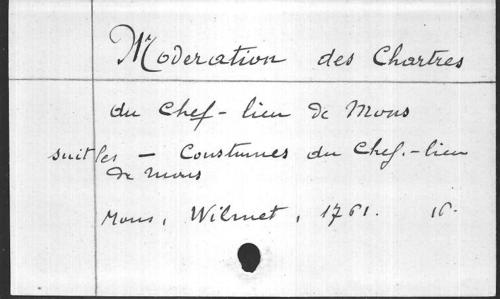 Moderation des Chartres
du Chef-lieu de Mons
suit les — Coustumes du Chef.-lieu
de Mons
Mons, Wilmet, 1761. 16.